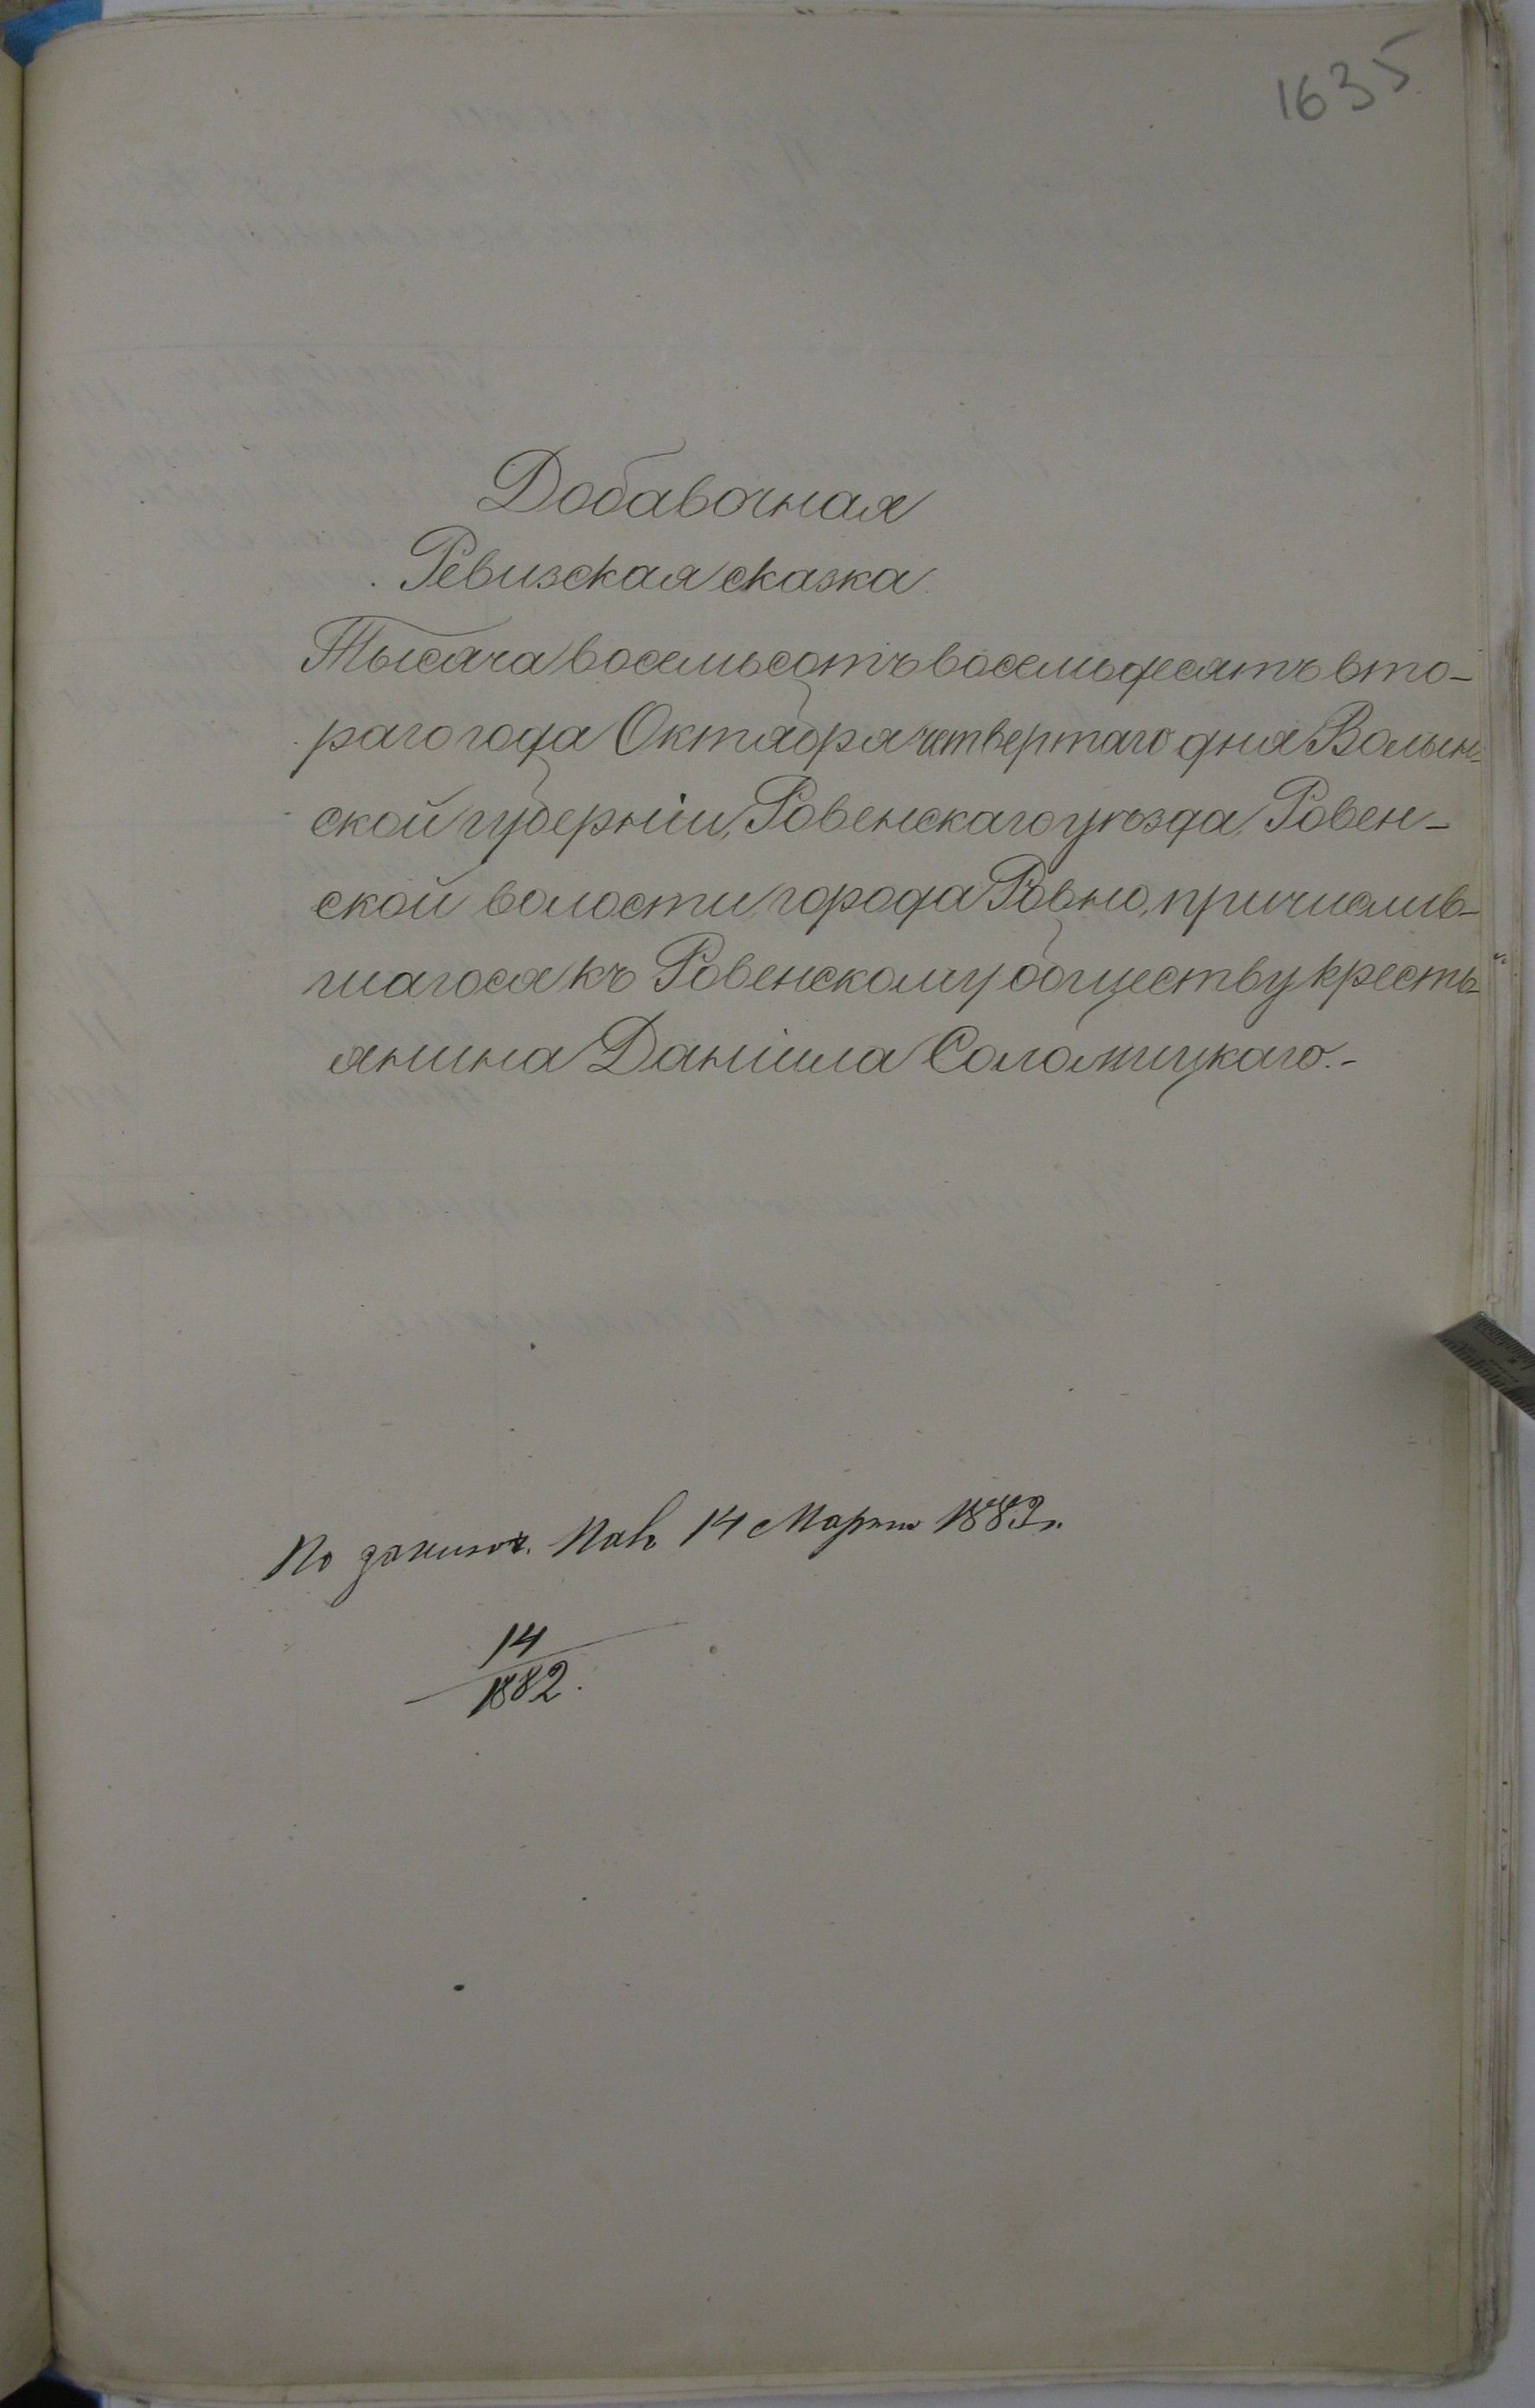 1635
Добавочная
Ревизская сказка.
Тысяча восемьсотъ восемьдесятъ вто-
раго года Октября четвертаго дня Волын-
ской губерніи, Ровенскаго уѣзда, Ровен-
ской волости города Ровно, причислив-
шагося къ Ровенскому обществу кресть-
янина Даніила Соломицкаго.-
По заключ. 14 Марта 1883 г.
14
1882.